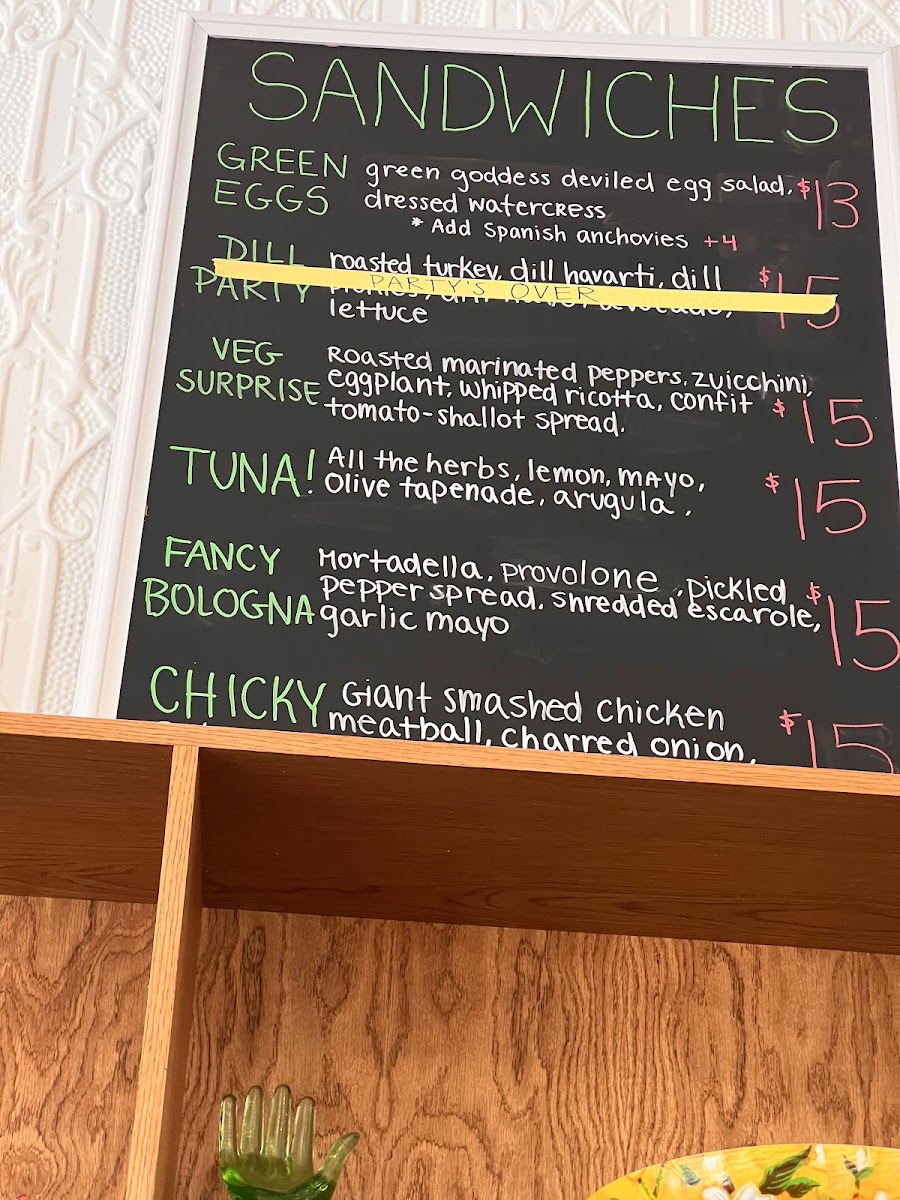 SANDWICHES
GREEN EGGS
green goddess deviled egg salad, $13
dressed watercress
* Add Spanish anchovies +4
DILL PARTY
roasted turkey, dill havarti, dill $15
PARTY'S OVER
lettuce
VEG SURPRISE
Roasted marinated peppers, zuicchini,
eggplant, whipped ricotta, confit $15
tomato-shallot spread.
TUNA!
All the herbs, lemon, mayo, $15
Olive tapenade, arugula,
FANCY BOLOGNA
Mortadella, provolone, pickled $15
pepper spread, shredded escarole,
garlic mayo
CHICKY
Giant smashed chicken $15
meatball, charred onion,